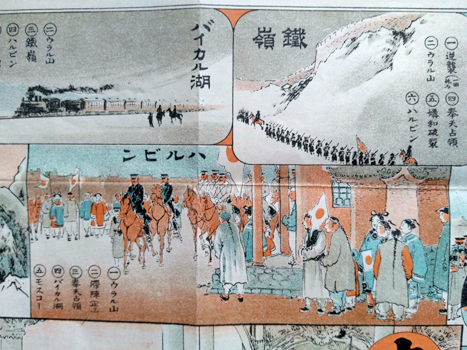 鐵嶺
一 逆襲
二 ウラル山
四 奉天占領
五 媾和破裂
六 ハルビン
バイカル湖
二 ウラル山
三 鐵嶺
四 ハルビン
ハルビン
一 ウラル山
二 滯陣
三 奉天占領
四 バイカル湖
五 モスコー